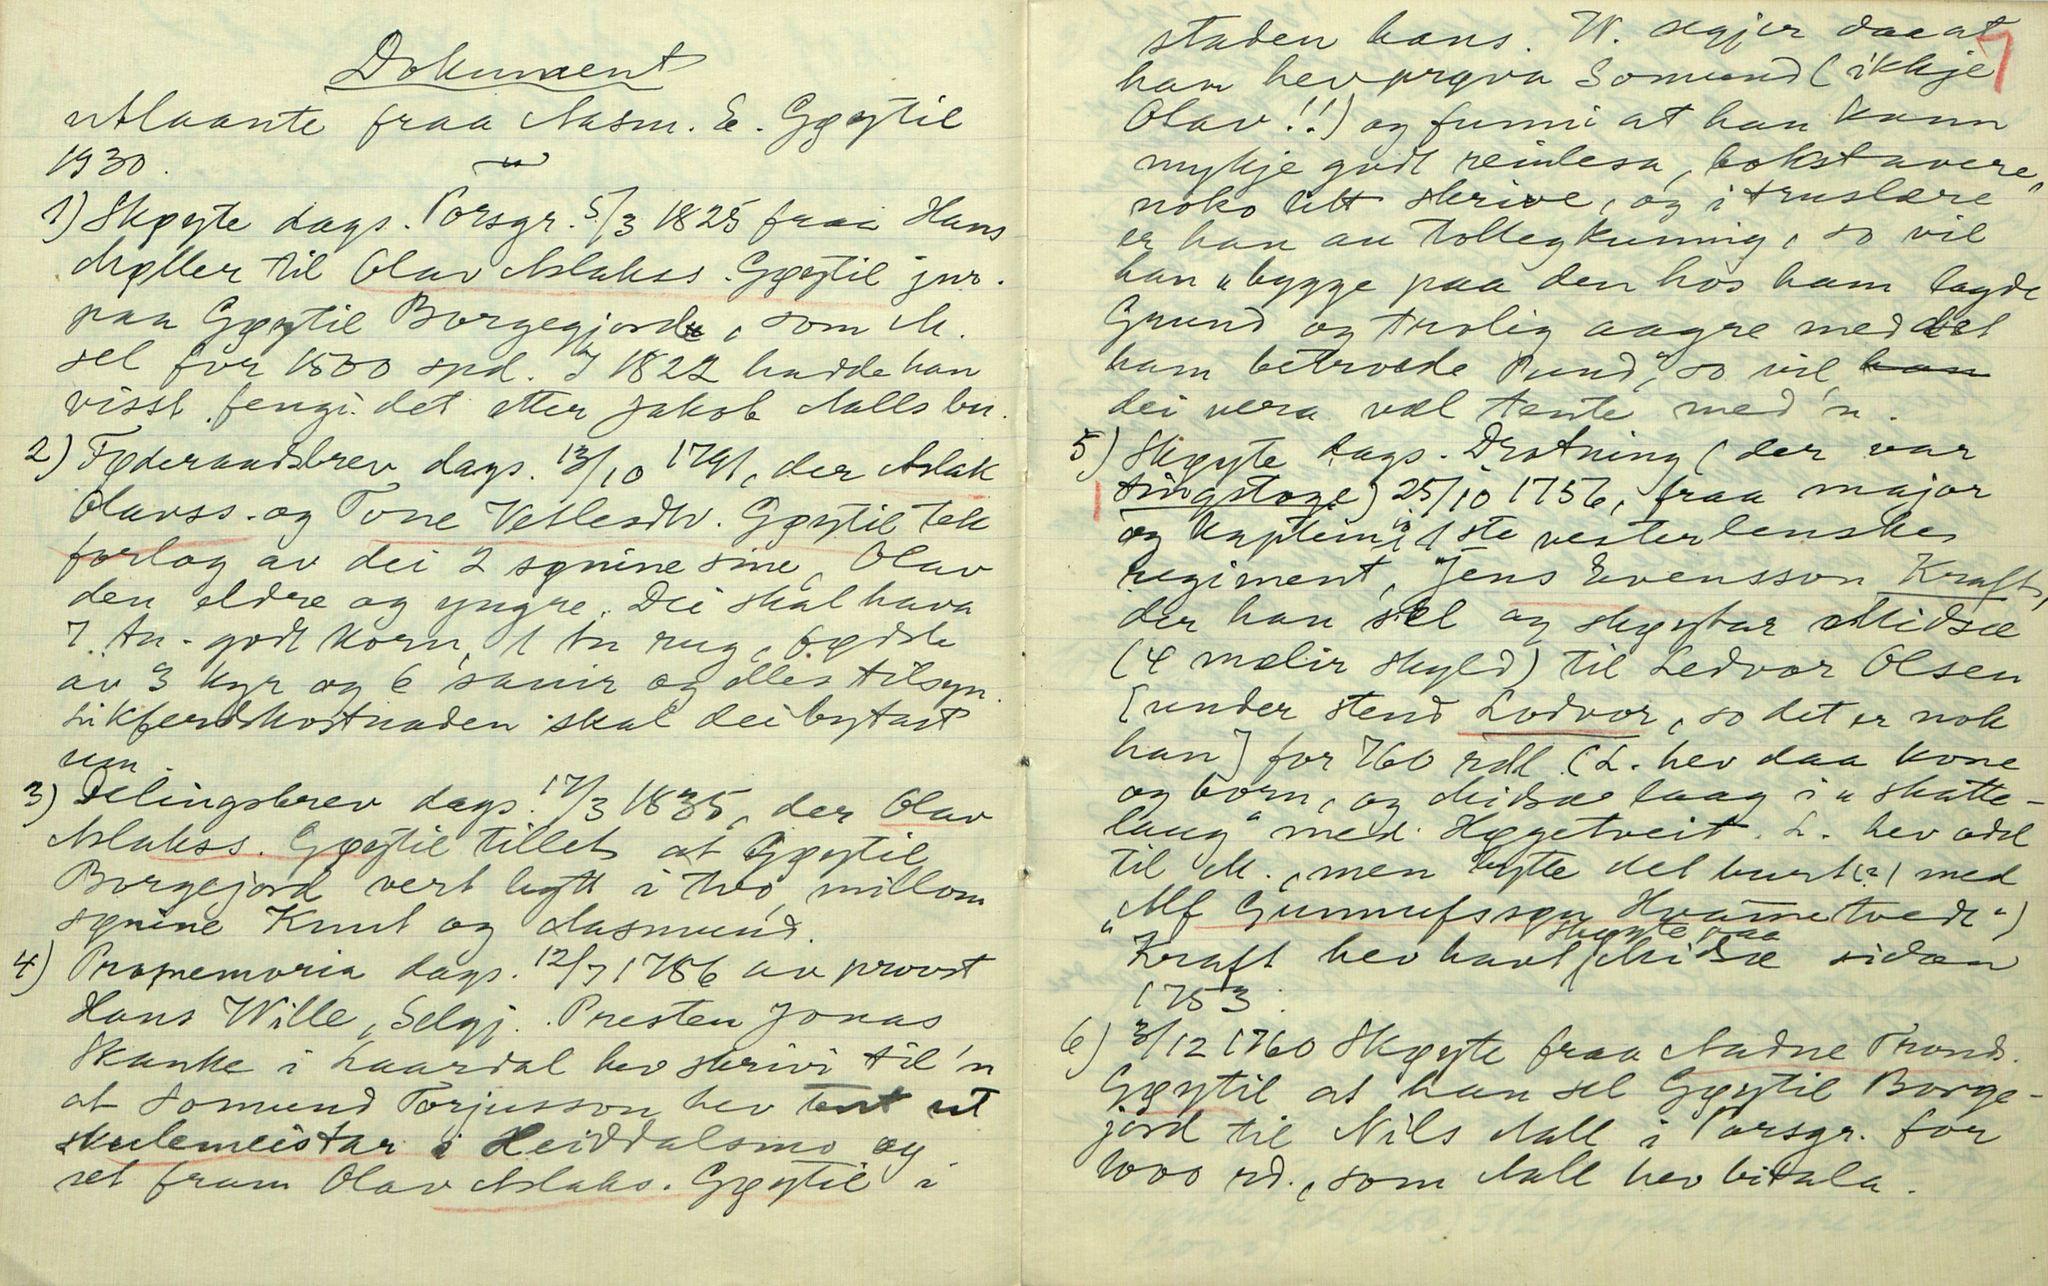 Dokument
utlaante fraa Aasm. E. Gøytil
1930.
1) Skøyte dags. Porsgr. 5/3 1825 fraa Hans
Møller til Olav Aslakss. Gøytil jur.
paa Gøytil Borgegjorde, som M.
sel for 1500 spd. I 1822 hadde han
visst fengi det etter Jakob Aalls bu.
2) Føderaadsbrev dags. 13/10 1791, der Aslak
Olavss. og Tone Vetlesdtr. Gøytil tek
forlog av dei 2 sønine sine, Olav
den eldre og yngre. Dei skal hava
7 tn. godt korn, 1 tn rug, fødsle
av 3 kyr og 6 sauir og elles tilsyn.
Likferdskostnaden skal dei bytast
um.
3) Delingsbrev dags. 17/3 1835, der Olav
Aslakss. Gøytil tillet at Gøytil
Borgejord vert bytt i tvo millom
sønine Knut og Aasmund.
4) Promemoria dags. 12/7 1786 av provst
Hans Wille, Selgj. Presten Jonas
Skanke i Laardal hev skrivi til 'n
at Somund Torjusson hev tent ut
skulemeistar i Heiddalsmo og
set fram Olav Aslaks. Gøytil i
staden hans. W. segjer daa at
han hev prøva Somund (ikkje
Olav!!) og funni at han kann
mykje godt reinlesa, bokstavere,
noko litt skrive, og i truslære
er han au tolleg kunnig, so vil
han "bygge paa den hos ham lagde
Grund og trolig aagre med det
ham betroede Pund", so vil han
dei vera vel tente med 'n.
5) Skøyte dags. Drotning (der var
tingstoge) 25/10 1756, fraa major
og kaptein i 1ste vesterlenske
regiment, Jens Evensson Kraft,
der han sel og skøytar Midsæ
(4 mælir skyld) til Ledvor Olsen
[under stend Lodvor, so det er nok
han] for 760 rdl. (L. hev daa kone
og born, og Midsæ laag i "skatte-
laug" med Høgetveit. L. hev odel
til M., men bytte det burt(?) med
"Alf Gunnufssøn Hvammetvedt")
Kraft hev havt skøyte paa Midsæ sidan
1753.
6) 3/12 1760 Skøyte fraa Aadne Trond.
Gøytil at han sel Gøytil Borge-
jord til Nils Aall i Porsgr. for
1000 rd., som Aall hev bitala.